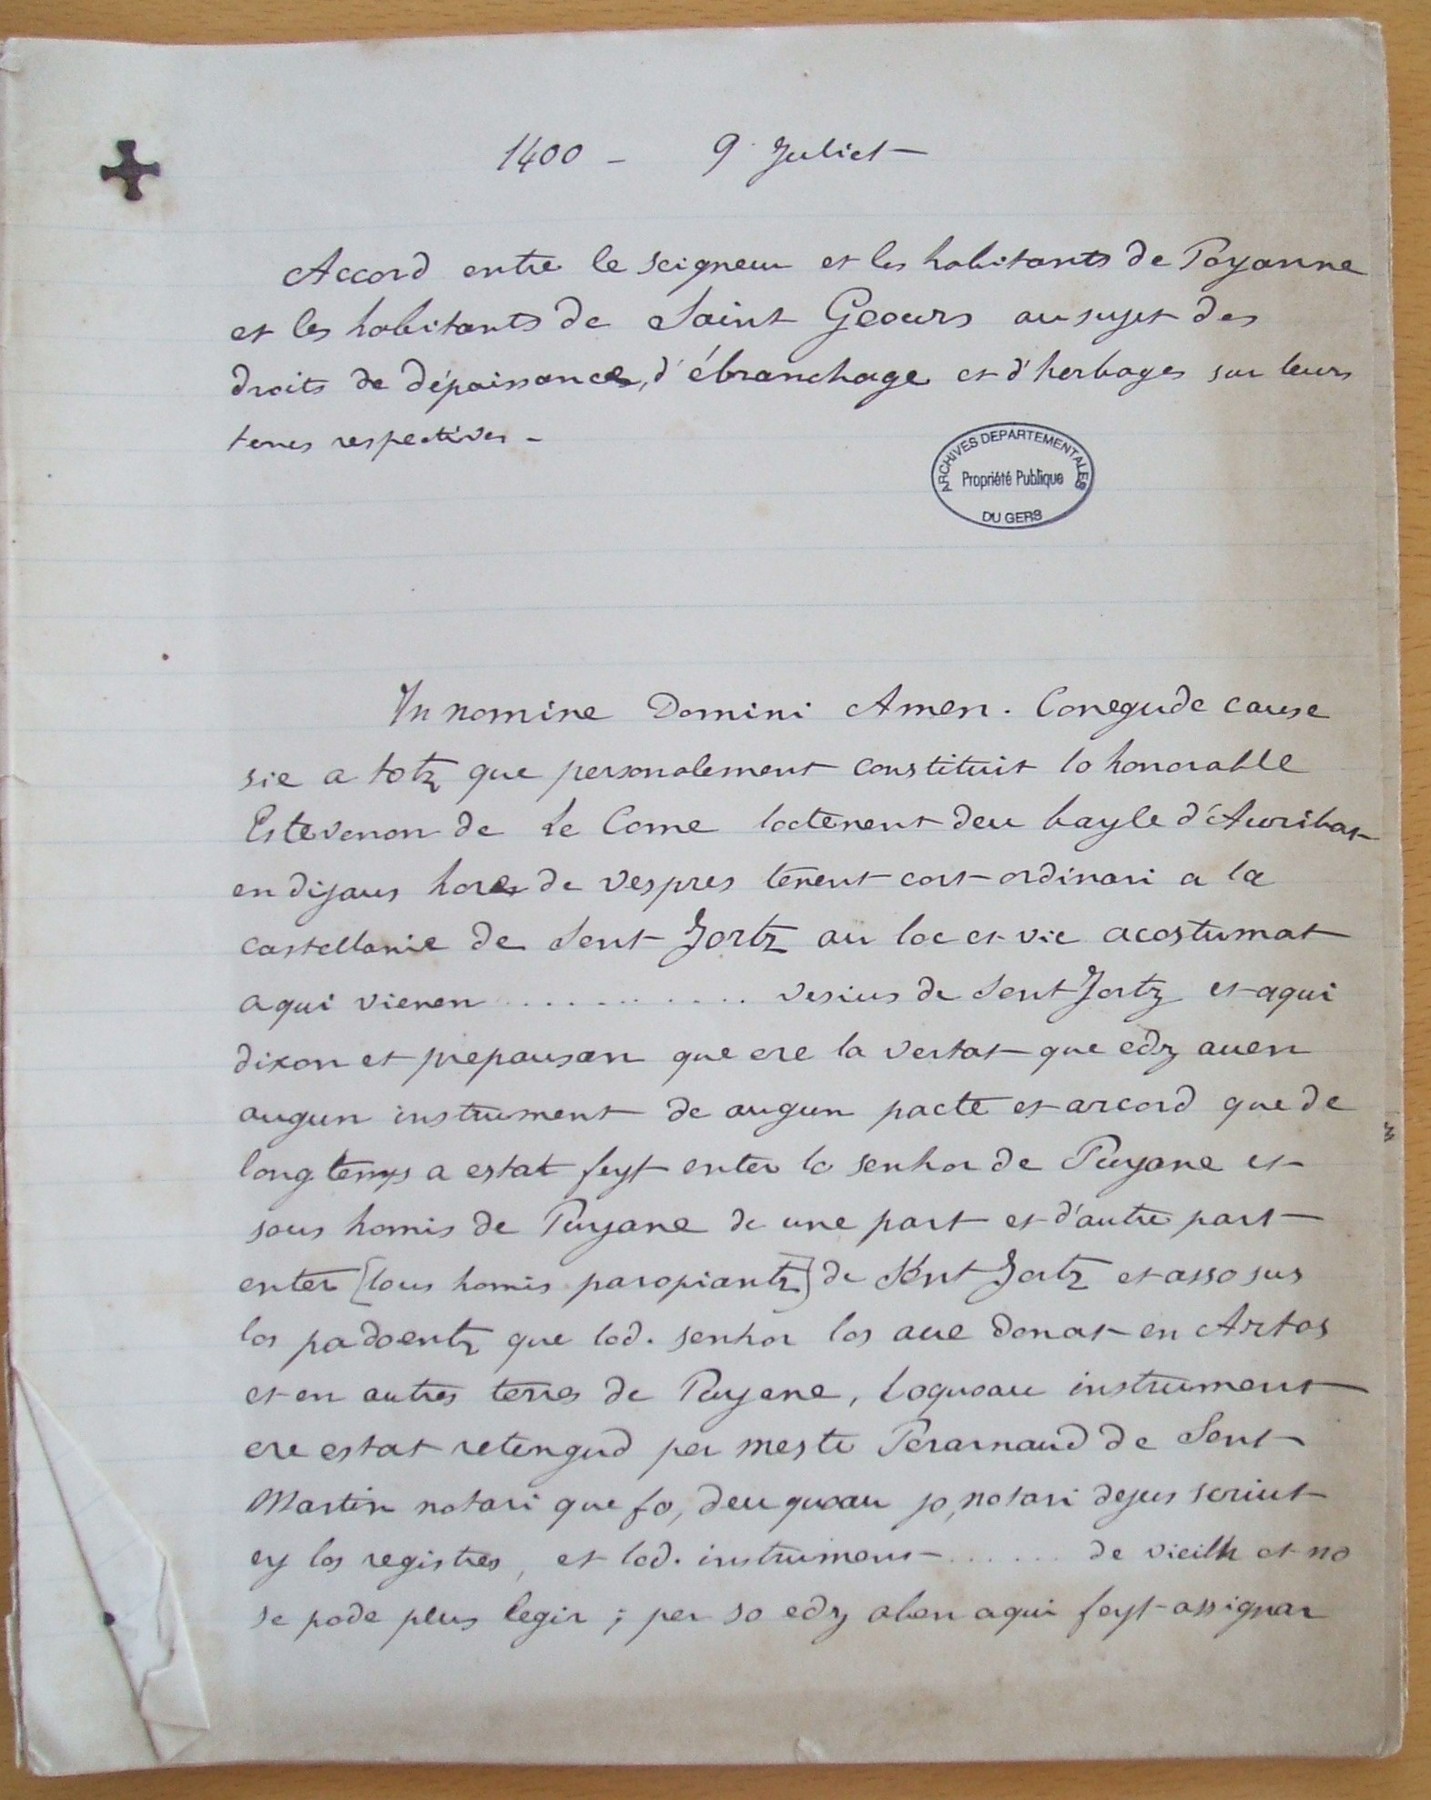 1400 - 9 Juliet
Accord entre le seigneur et les habitants de Poyanne
et les habitants de Saint Geours au sujet des
droits de dépaissance, d'ébranchage et d'herbages sur leurs
terres respectives -
ARCHIVES DEPARTEMENTALES
Propriété Publique
DU GERS
In nomine Domini Amen. Conegude cause
sie a totz que personalement constituit lo honorable
Estevenon de Le Come loctenent deu bayle d'Auribat
en dijaus hore de vespres tenent cort ordinari a la
castellanie de Sent Jortz au loc et vic acostumat
aqui vienen ............ vesius de Sent Jortz et aqui
dixon et prepausan que ere la vertat que edz auen
augun instrument de augun pacte et arcord que de
long temps a estat feyt enter lo senhor de Puyane et
sous homis de Puyane de une part et d'autre part
enter [lous homis paropiantz] de Sent Jortz et asso sus
los padoentz que lod. senhor los aue donat en Artos
et en autres terres de Puyane, loquoau instrument
ere estat retengud per meste Perarnaud de Sent
Martin notari que fo, deu quoau jo, notari dejus scriut
ey los registres, et lod. instrument ...... de vieilh et no
se pode plus legir ; per so edz aben aqui feyt assignar